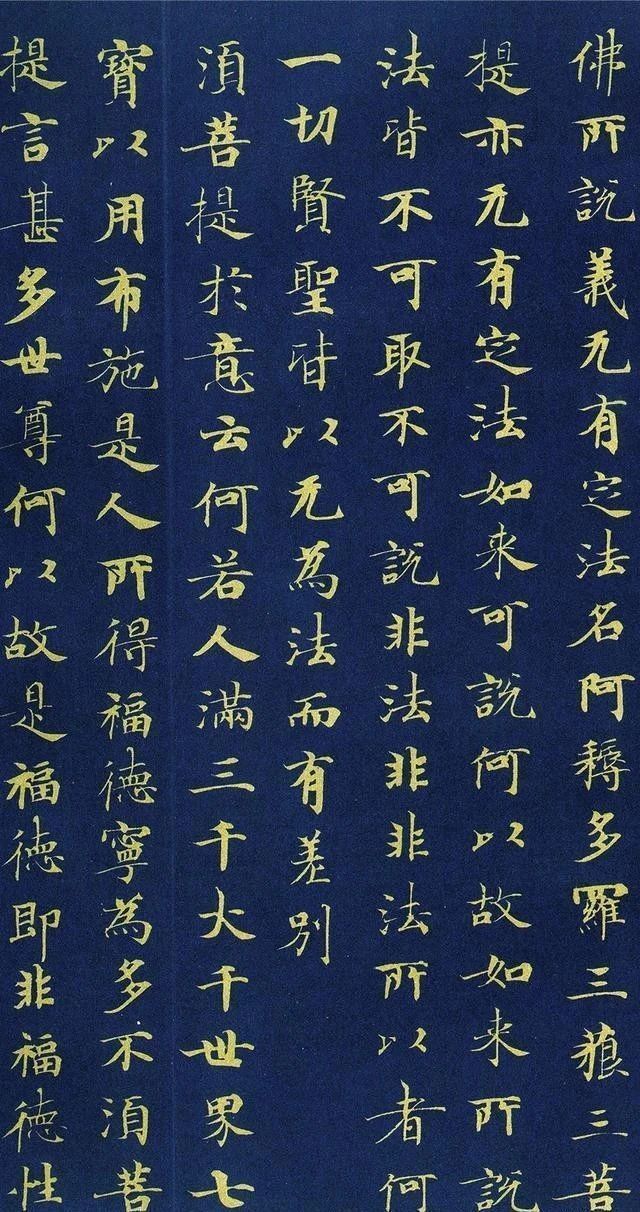 佛所說義无有定法名阿耨多羅三藐三菩
提亦无有定法如来可說何以故如来所說
法皆不可取不可說非法非非法所以者何
一切賢聖皆以无為法而有差别
湏菩提於意云何若人滿三千大千世界七
寶以用布施是人所得福德寧為多不湏菩
提言甚多世尊何以故是福德即非福德性